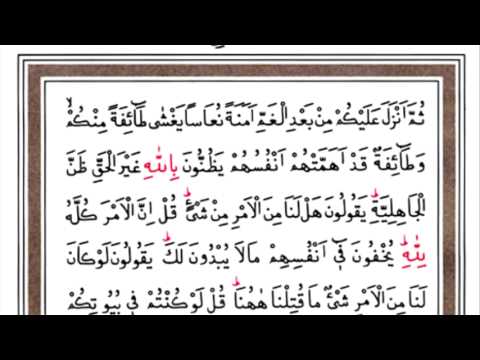 ثُمَّ اَنْزَلَ عَلَيْكُمْ مِنْ بَعْدِ الْغَمِّ اَمَنَةً نُعَاسًا يَغْشٰى طَٓائِفَةً مِنْكُمْۙ
وَطَٓائِفَةٌ قَدْ اَهَمَّتْهُمْ اَنْفُسُهُمْ يَظُنُّونَ بِاللّٰهِ غَيْرَ الْحَقِّ ظَنَّ
الْجَاهِلِيَّةِۜ يَقُولُونَ هَلْ لَنَا مِنَ الْاَمْرِ مِنْ شَيْءٍۜ قُلْ اِنَّ الْاَمْرَ كُلَّهُ
لِلّٰهِۜ يُخْفُونَ فٓي اَنْفُسِهِمْ مَالَا يُبْدُونَ لَكَۜ يَقُولُونَ لَوْكَانَ
لَنَا مِنَ الْاَمْرِ شَيْءٌ مَا قُتِلْنَا هٰهُنَاۜ قُلْ لَوْكُنْتُمْ فٖي بُيُوتِكُمْ